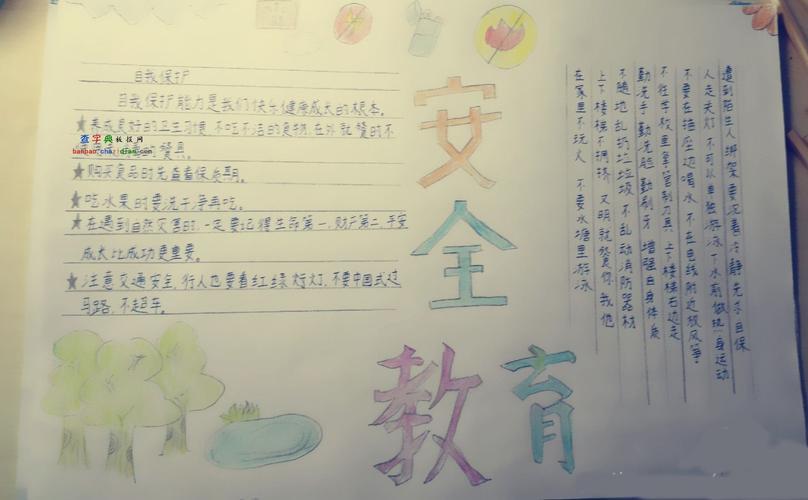 自我保护
自我保护能力是我们快乐健康成长的根本。
★养成良好的卫生习惯 不吃不洁的食物,在外就餐的不
的餐具。
★购买食品时先查看保质期。
★吃水果时要洗干净再吃。
★在遇到自然灾害时,一定要记得生命第一,财产第二,平安
成长比成功更重要。
★注意交通安全,行人也要看红绿灯,不要中国式过
马路,不超车。
查字典教技网
banbao.chazidian.com
安全
教育
遭到陌生人绑架要沉着冷静先求自保
人走关灯 不可以单独游泳下水前做热身运动
不要在插座边喝水 不在电线附近放风筝
不在学校里拿管制刀具 上下楼梯右边走
勤洗手勤洗脸勤刷牙 增强自身体质
不随地乱扔垃圾 不乱动消防器材
上下楼梯不拥挤 文明就餐你我他
在家里不玩火 不要水塘里游泳